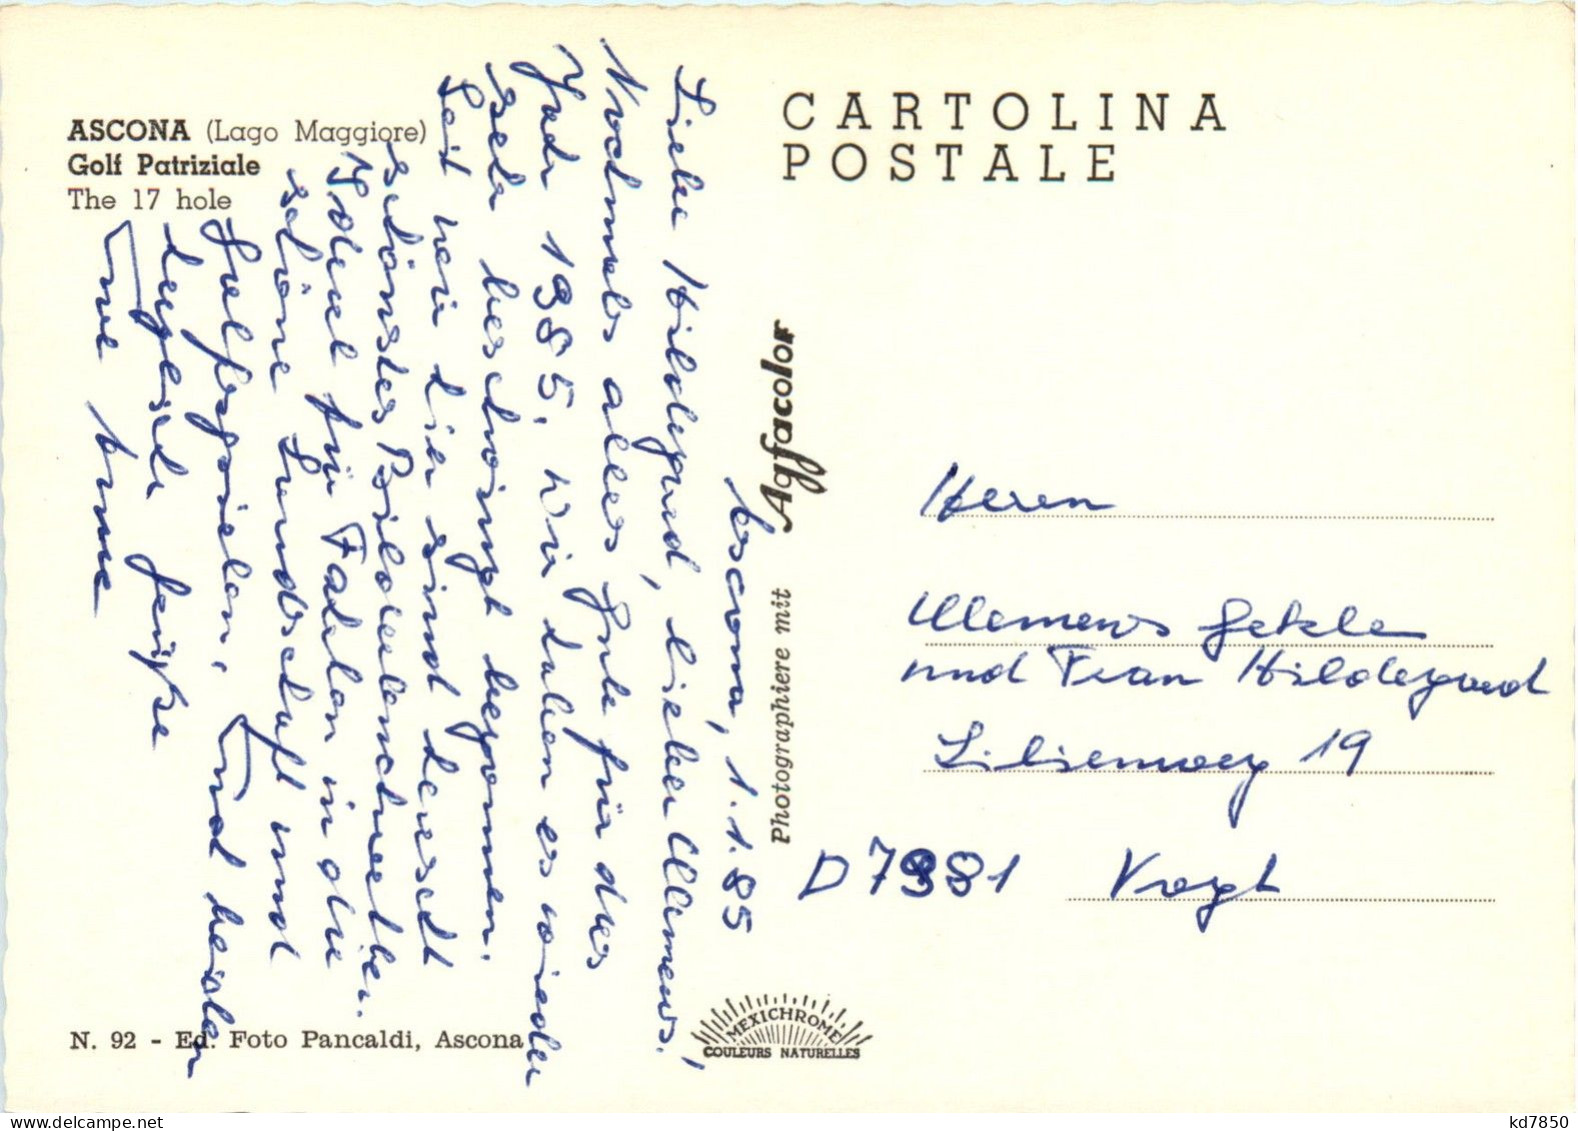 ASCONA (Lago Maggiore)
Golf Patriziale
The 17 hole
CARTOLINA
POSTALE
Ascona, 1.1.85
Liebe Hildegard, lieber Clemens!
Nochmals alles Gute für das
Jahr 1985. Wir haben es wieder
sehr beschwingt begonnen.
Seit wir hier sind herrscht
schönstes
Ideal für in die
schöne Landschaft und
Golfspielen. Und beiden
herzliche Grüße
Eure Anne
Photographiere mit Agfacolor
Herrn
Clemens
und Frau Hildegard
Lilienweg 19
D 7981 Vogt
N. 92 - Ed. Foto Pancaldi, Ascona
MEXICHROME
COULEURS NATURELLES
www.delcampe.net
kd7850